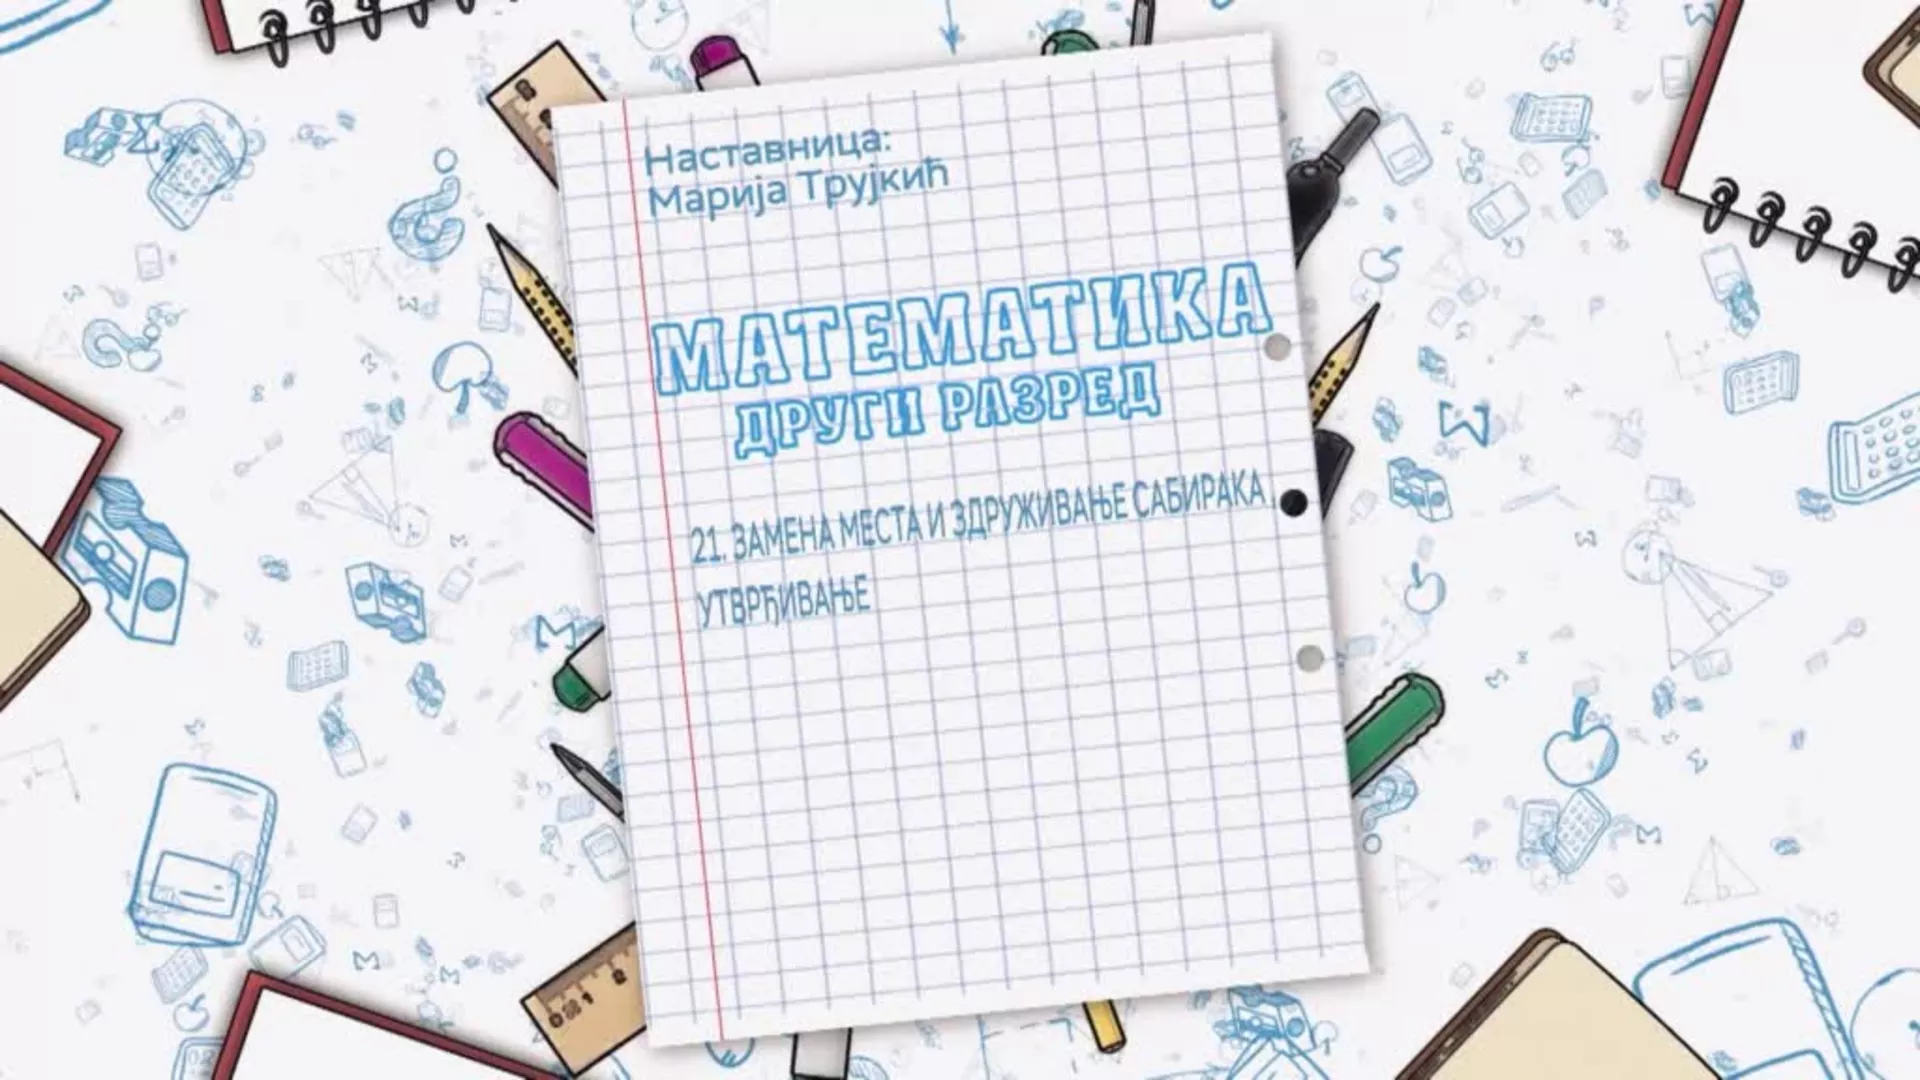 Наставница:
Марија Трујкић
МАТЕМАТИКА
ДРУГИ РАЗРЕД
21. ЗАМЕНА МЕСТА И ЗДРУЖИВАЊЕ САБИРАКА,
УТВРЂИВАЊЕ